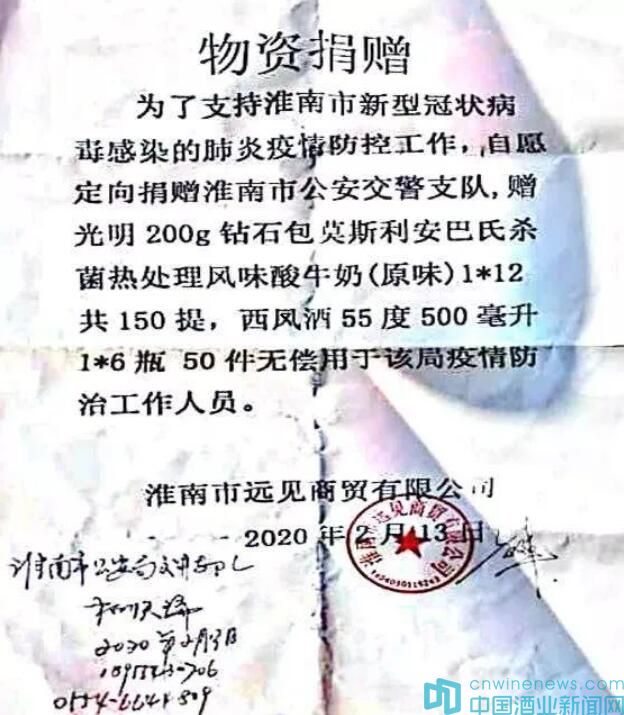 物资捐赠
为了支持淮南市新型冠状病
毒感染的肺炎疫情防控工作，自愿
定向捐赠淮南市公安交警支队，赠
光明 200g 钻石包莫斯利安巴氏杀
菌热处理风味酸牛奶(原味)1*12
共 150 提，西凤酒 55 度 500 毫升
1*6 瓶 50 件无偿用于该局疫情防
治工作人员。
淮南市远见商贸有限公司
2020 年 2 月 13 日
淮南市远见商贸有限公司
淮南市公安局交警支队
2020年2月13日
cnwinenews.com
中国酒业新闻网